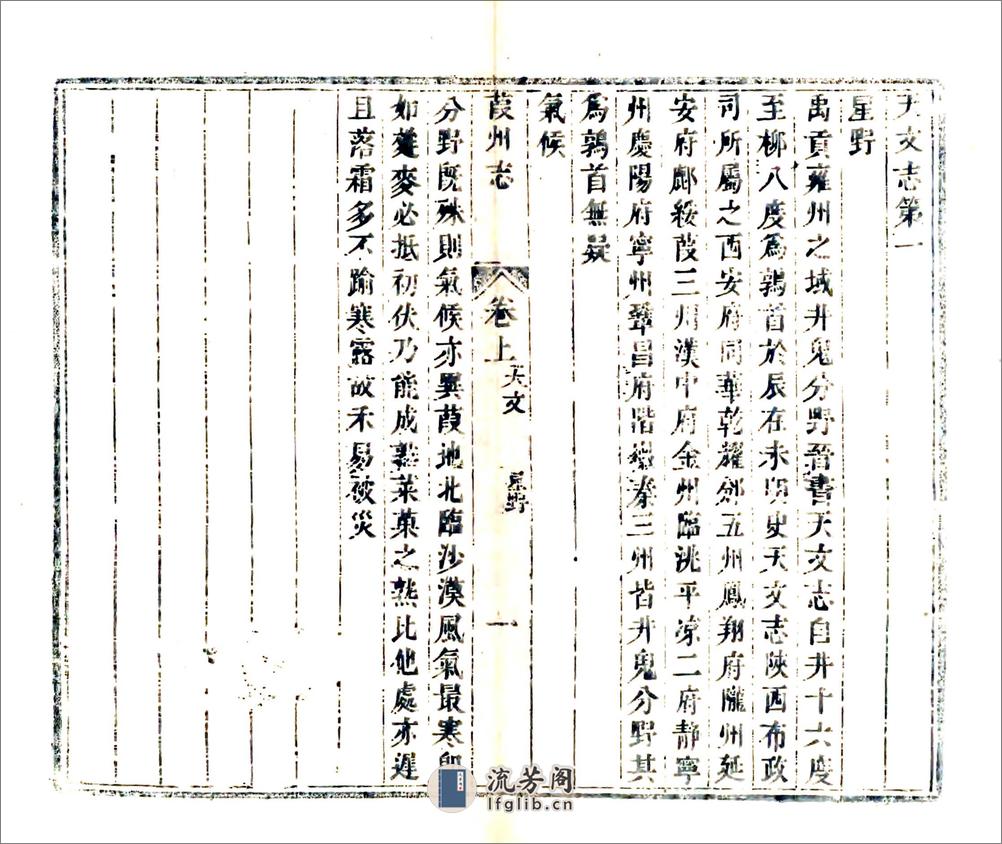 天文志第一
星野
禹貢雍州之域井鬼分野晉書天文志自井十六度
至柳八度爲鶉首於辰在未明史天文志陝西布政
司所屬之西安府同華乾耀邠五州鳳翔府隴州延
安府鄜綏葭三州漢中府金州臨洮平涼二府靜寧
州慶陽府寧州鞏昌府階徽秦三州皆井鬼分野其
爲鶉首無疑
氣候
葭州志
卷上
天文
星野
一
分野既殊則氣候亦異葭地北臨沙漠風氣最寒卽
如麰麥必抵初伏乃能成熟菜菓之熟比他處亦遲
且落霜多不踰寒露故禾易被災
流芳阁
lfglib.cn